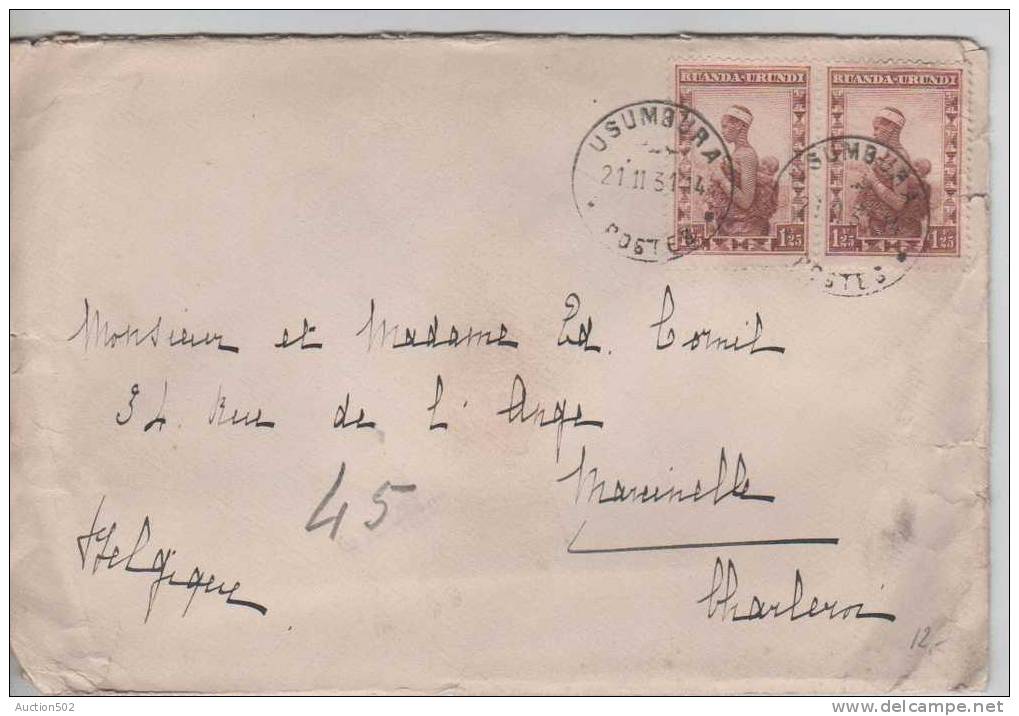 RUANDA-URUNDI RUANDA-URUNDI
USUMBURA
21.11.31-14
POSTES
USUMBURA
POSTES
1.25 1.25 1.25 1.25
Monsieur et Madame Ed. Cornil
34 Rue de l'Ange
45
Marcinelle
Belgique
Charleroi
12,-
Auction502
www.delcampe.net